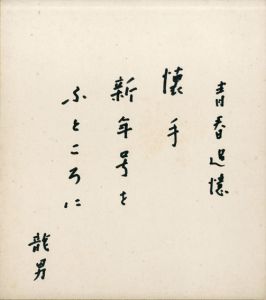 青春追憶
懐手
新年号を
ふところに
龍男